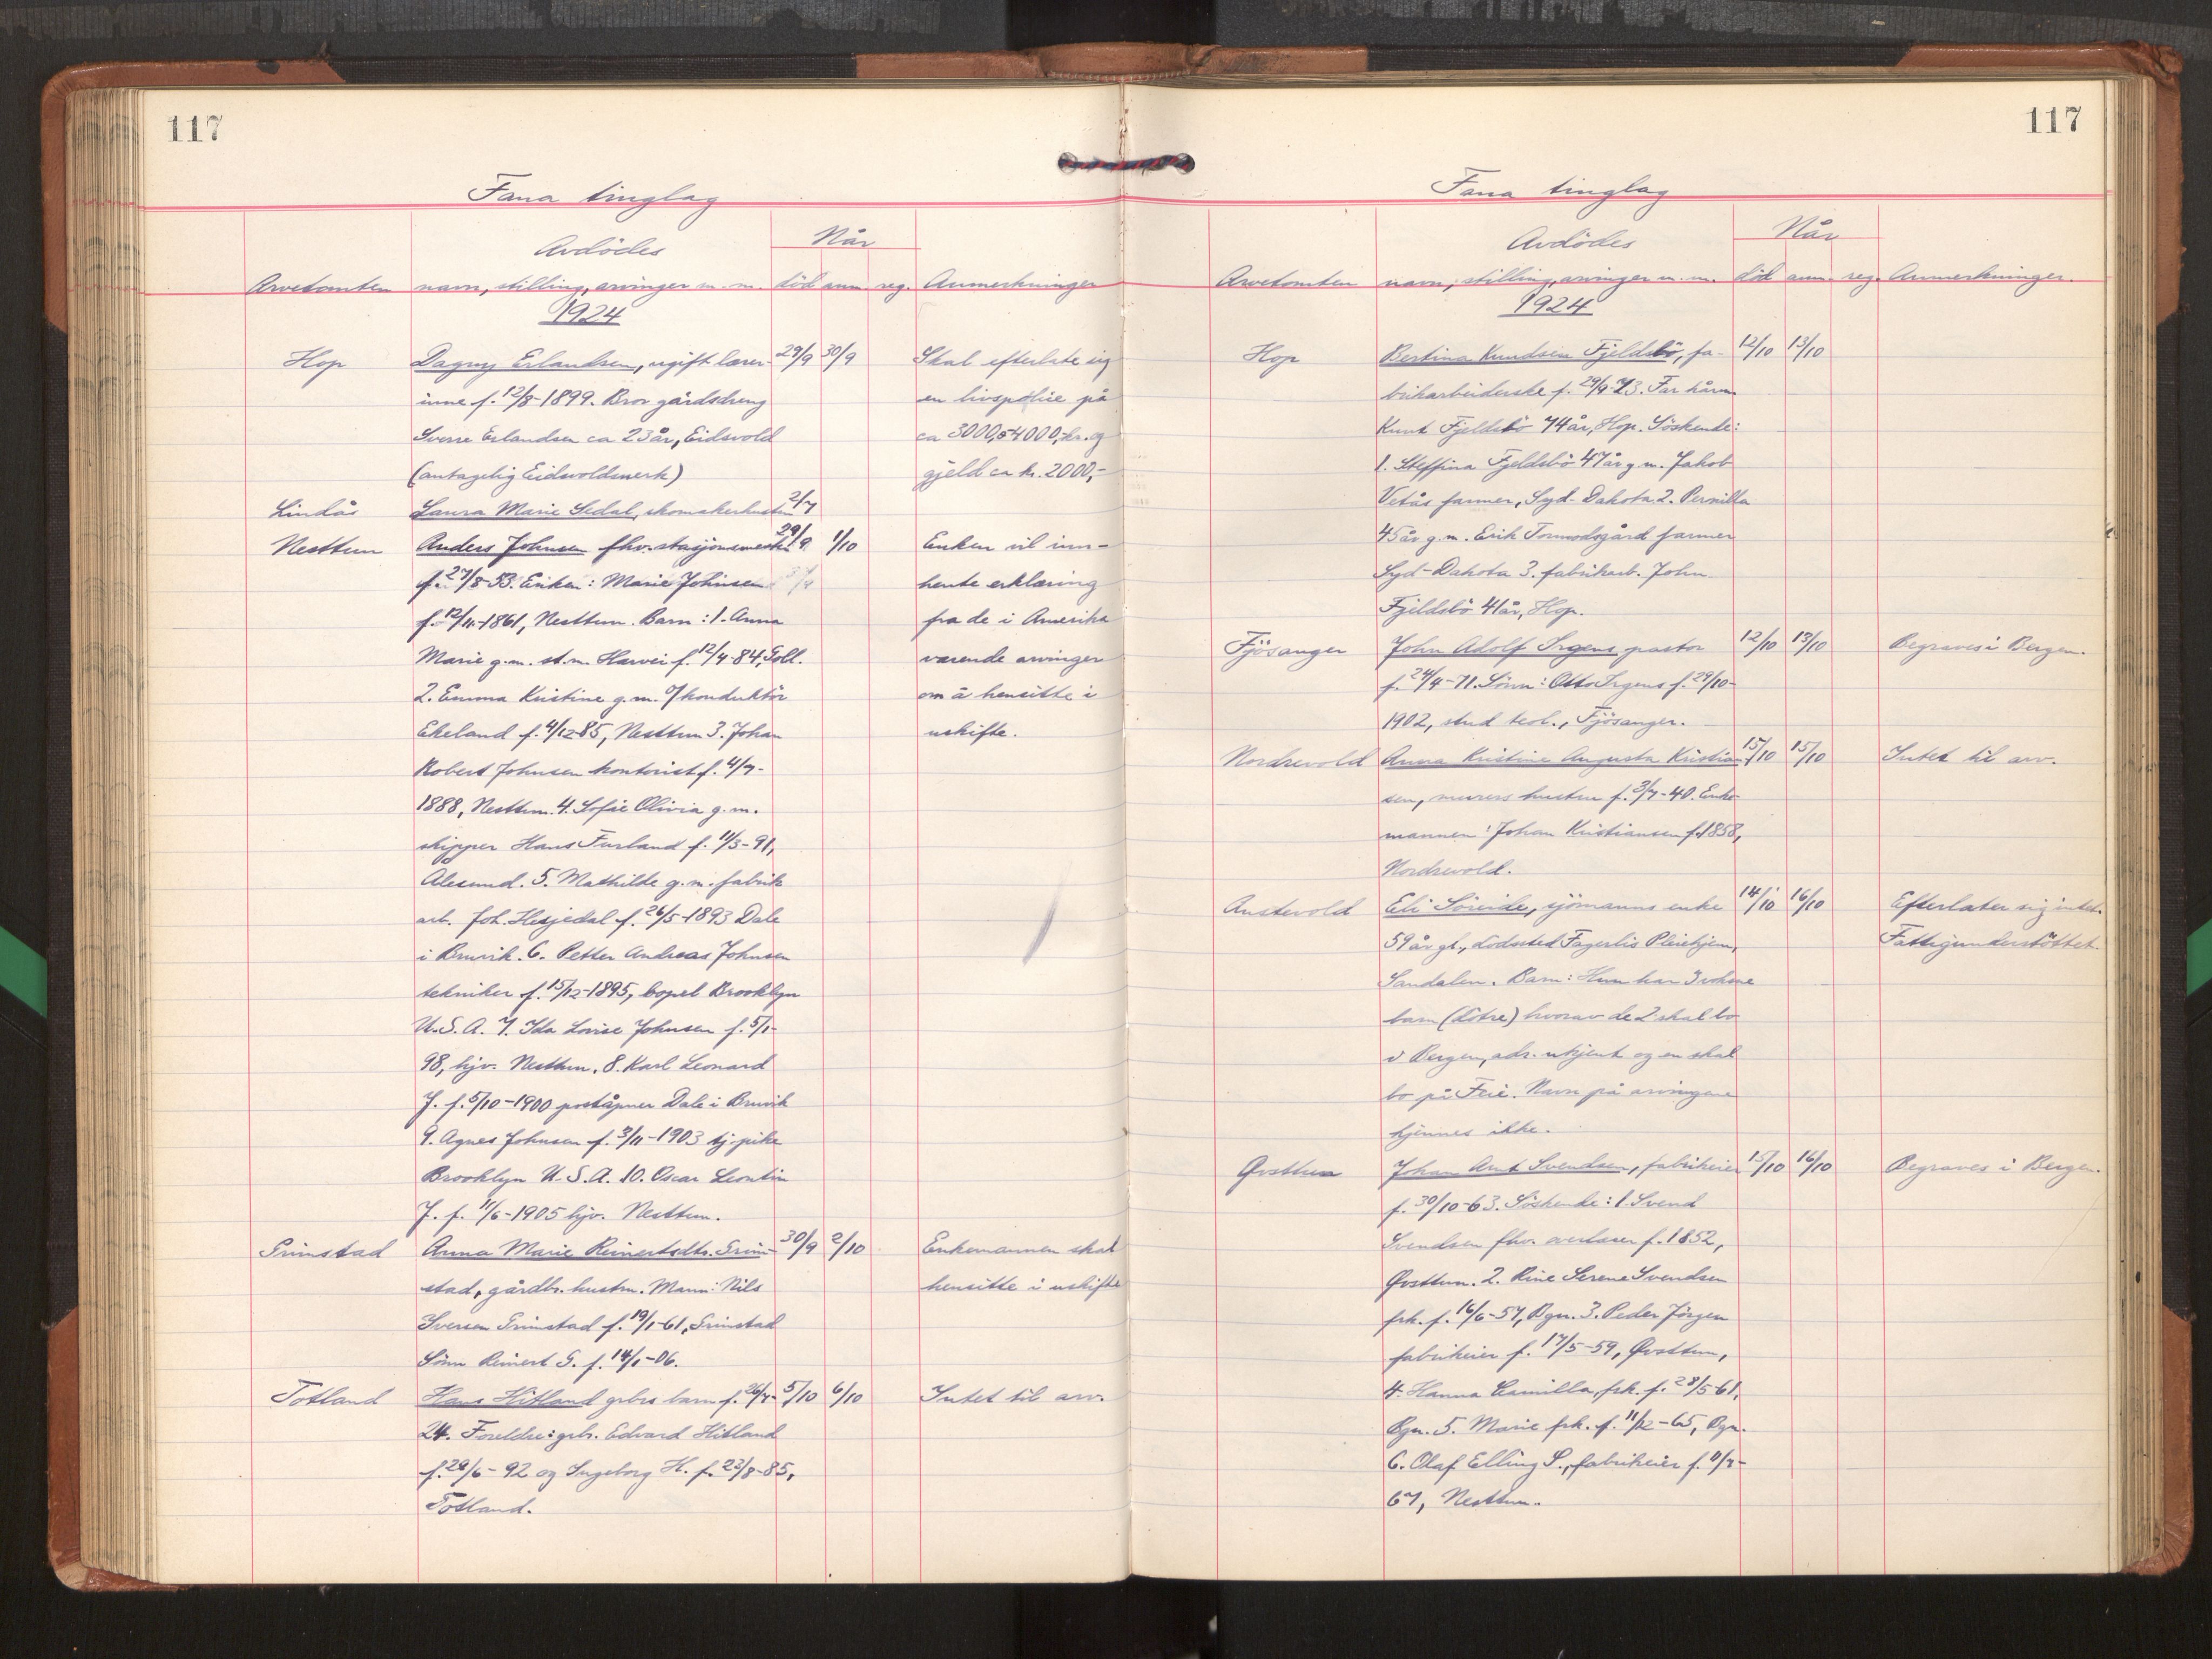 117
Fana tinglag
Når
Avdödes
Arvetomten navn, stilling, arvinger m. m. död anm reg. Anmerkninger
1924
Hop Dagny Erlandsen, ugift lærer- 29/9 30/9 Skal efterlate sig
inne f. 12/8-1899. Bror gårdsdreng en livspolise på
Sverre Erlandsen ca 23 år, Eidsvold ca 3000,- á 4000,- kr. og
(antagelig Eidsvoldsverk) gjeld ca kr. 2000,-
Lindås Laura Marie Sedal, skomakerhustru 2/7
Nesttun Anders Johnsen fhv. stasjonsmester 29/9 1/10 Enken vil inn-
f. 27/8-53. Enken: Marie Johnsen hente erklæring
f. 12/11-1861, Nesttun. Barn: 1. Anna fra de i Amerika
Marie g.m. st.m. Harvei f. 12/4-84, Voll. værende arvinger
2. Emma Kristine g.m. o/konduktör om å hensitte i
Ekeland f. 4/12-85, Nesttun 3. Johan uskifte.
Robert Johnsen kontorist f. 4/7-
1888, Nesttun. 4. Sofie Olivia g.m.
skipper Hans Furland f. 11/3-91,
Ålesund. 5. Mathilde g.m. fabrik
arb. Joh. Hesjedal f. 26/5-1893 Dale
i Bruvik. 6. Petter Andreas Johnsen
tekniker f. 15/12-1895, bopel Brooklyn
U.S.A. 7. Ida Lovise Johnsen f. 5/1-
98, hjv. Nesttun. 8. Karl Leonard
J. f. 5/10-1900 poståpner Dale i Bruvik
9. Agnes Johnsen f. 3/11-1903 tj.pike
Brooklyn U.S.A. 10. Oscar Leontin
J. f. 11/6-1905 hjv. Nesttun.
Grimstad Anna Marie Reinertsdtr. Grim- 30/9 2/10 Enkemannen skal
stad, gårdbr. hustru. Mann: Nils hensitte i uskifte
Iversen Grimstad f. 19/1-61, Grimstad
Sönn Reinert G. f. 14/1-06.
Totland Hans Hitland grbrs barn f. 26/7- 5/10 6/10 Intet til arv.
24. Foreldre: grb. Edvard Hitland
f. 28/6-92 og Ingeborg H. f. 23/8-85,
Totland.
117
Fana tinglag
Når
Avdödes
Arvetomten navn, stilling, arvinger m. m. död anm. reg. Anmerkninger.
1924
Hop Bertina Knudsen Fjeldsbö, fa- 12/10 13/10
brikarbeiderske f. 29/9-73. Far kårm.
Knut Fjeldsbö 74 år, Hop. Söskende:
1. Steffina Fjeldsbö 47 år g. m. Jakob
Vetås farmer, Syd-Dakota. 2. Pernilla
45 år g.m. Erik Tormodsgård farmer
Syd-Dakota 3. fabrikarb. John
Fjeldsbö 41 år, Hop.
Fjösanger John Adolf Irgens pastor 12/10 13/10 Begraves i Bergen.
f. 24/4-71. Sönn: Otto Irgens f. 29/10-
1902, stud teol., Fjösanger.
Nordrevold Anna Kristine Augusta Kristian- 15/10 15/10 Intet til arv.
sen, murers hustru f. 3/7-40. Enke-
mannen: Johan Kristiansen f. 1858,
Nordrevold.
Austevold Eli Söreide, sjömanns enke 14/10 16/10 Efterlater sig intet.
59 år gl., dödssted Fagerlis Pleiehjem, Fattigunderstöttet.
Sandalen. Barn: Hun har 3 voksne
barn (dötre) hvorav de 2 skal bo
i Bergen, adr. ukjent og en skal
bo på Feie. Navn på arvingene
kjennes ikke.
Øvsttun Johan Arnt Svendsen, fabrikeier 15/10 16/10 Begraves i Bergen.
f. 30/10-63. Söskende: 1. Svend
Svendsen fhv. overlærer f. 1852,
Øvsttun. 2. Rine Serene Svendsen
frk. f. 16/6-57, Bgn. 3. Peder Jörgen
fabrikeier f. 17/5-59, Øvsttun,
4. Hanna Camilla, frk. f. 28/5-61,
Bgn. 5. Marie frk. f. 11/12-65, Bgn.
6. Olaf Elling S., fabrikeier f.
67, Nesttun.